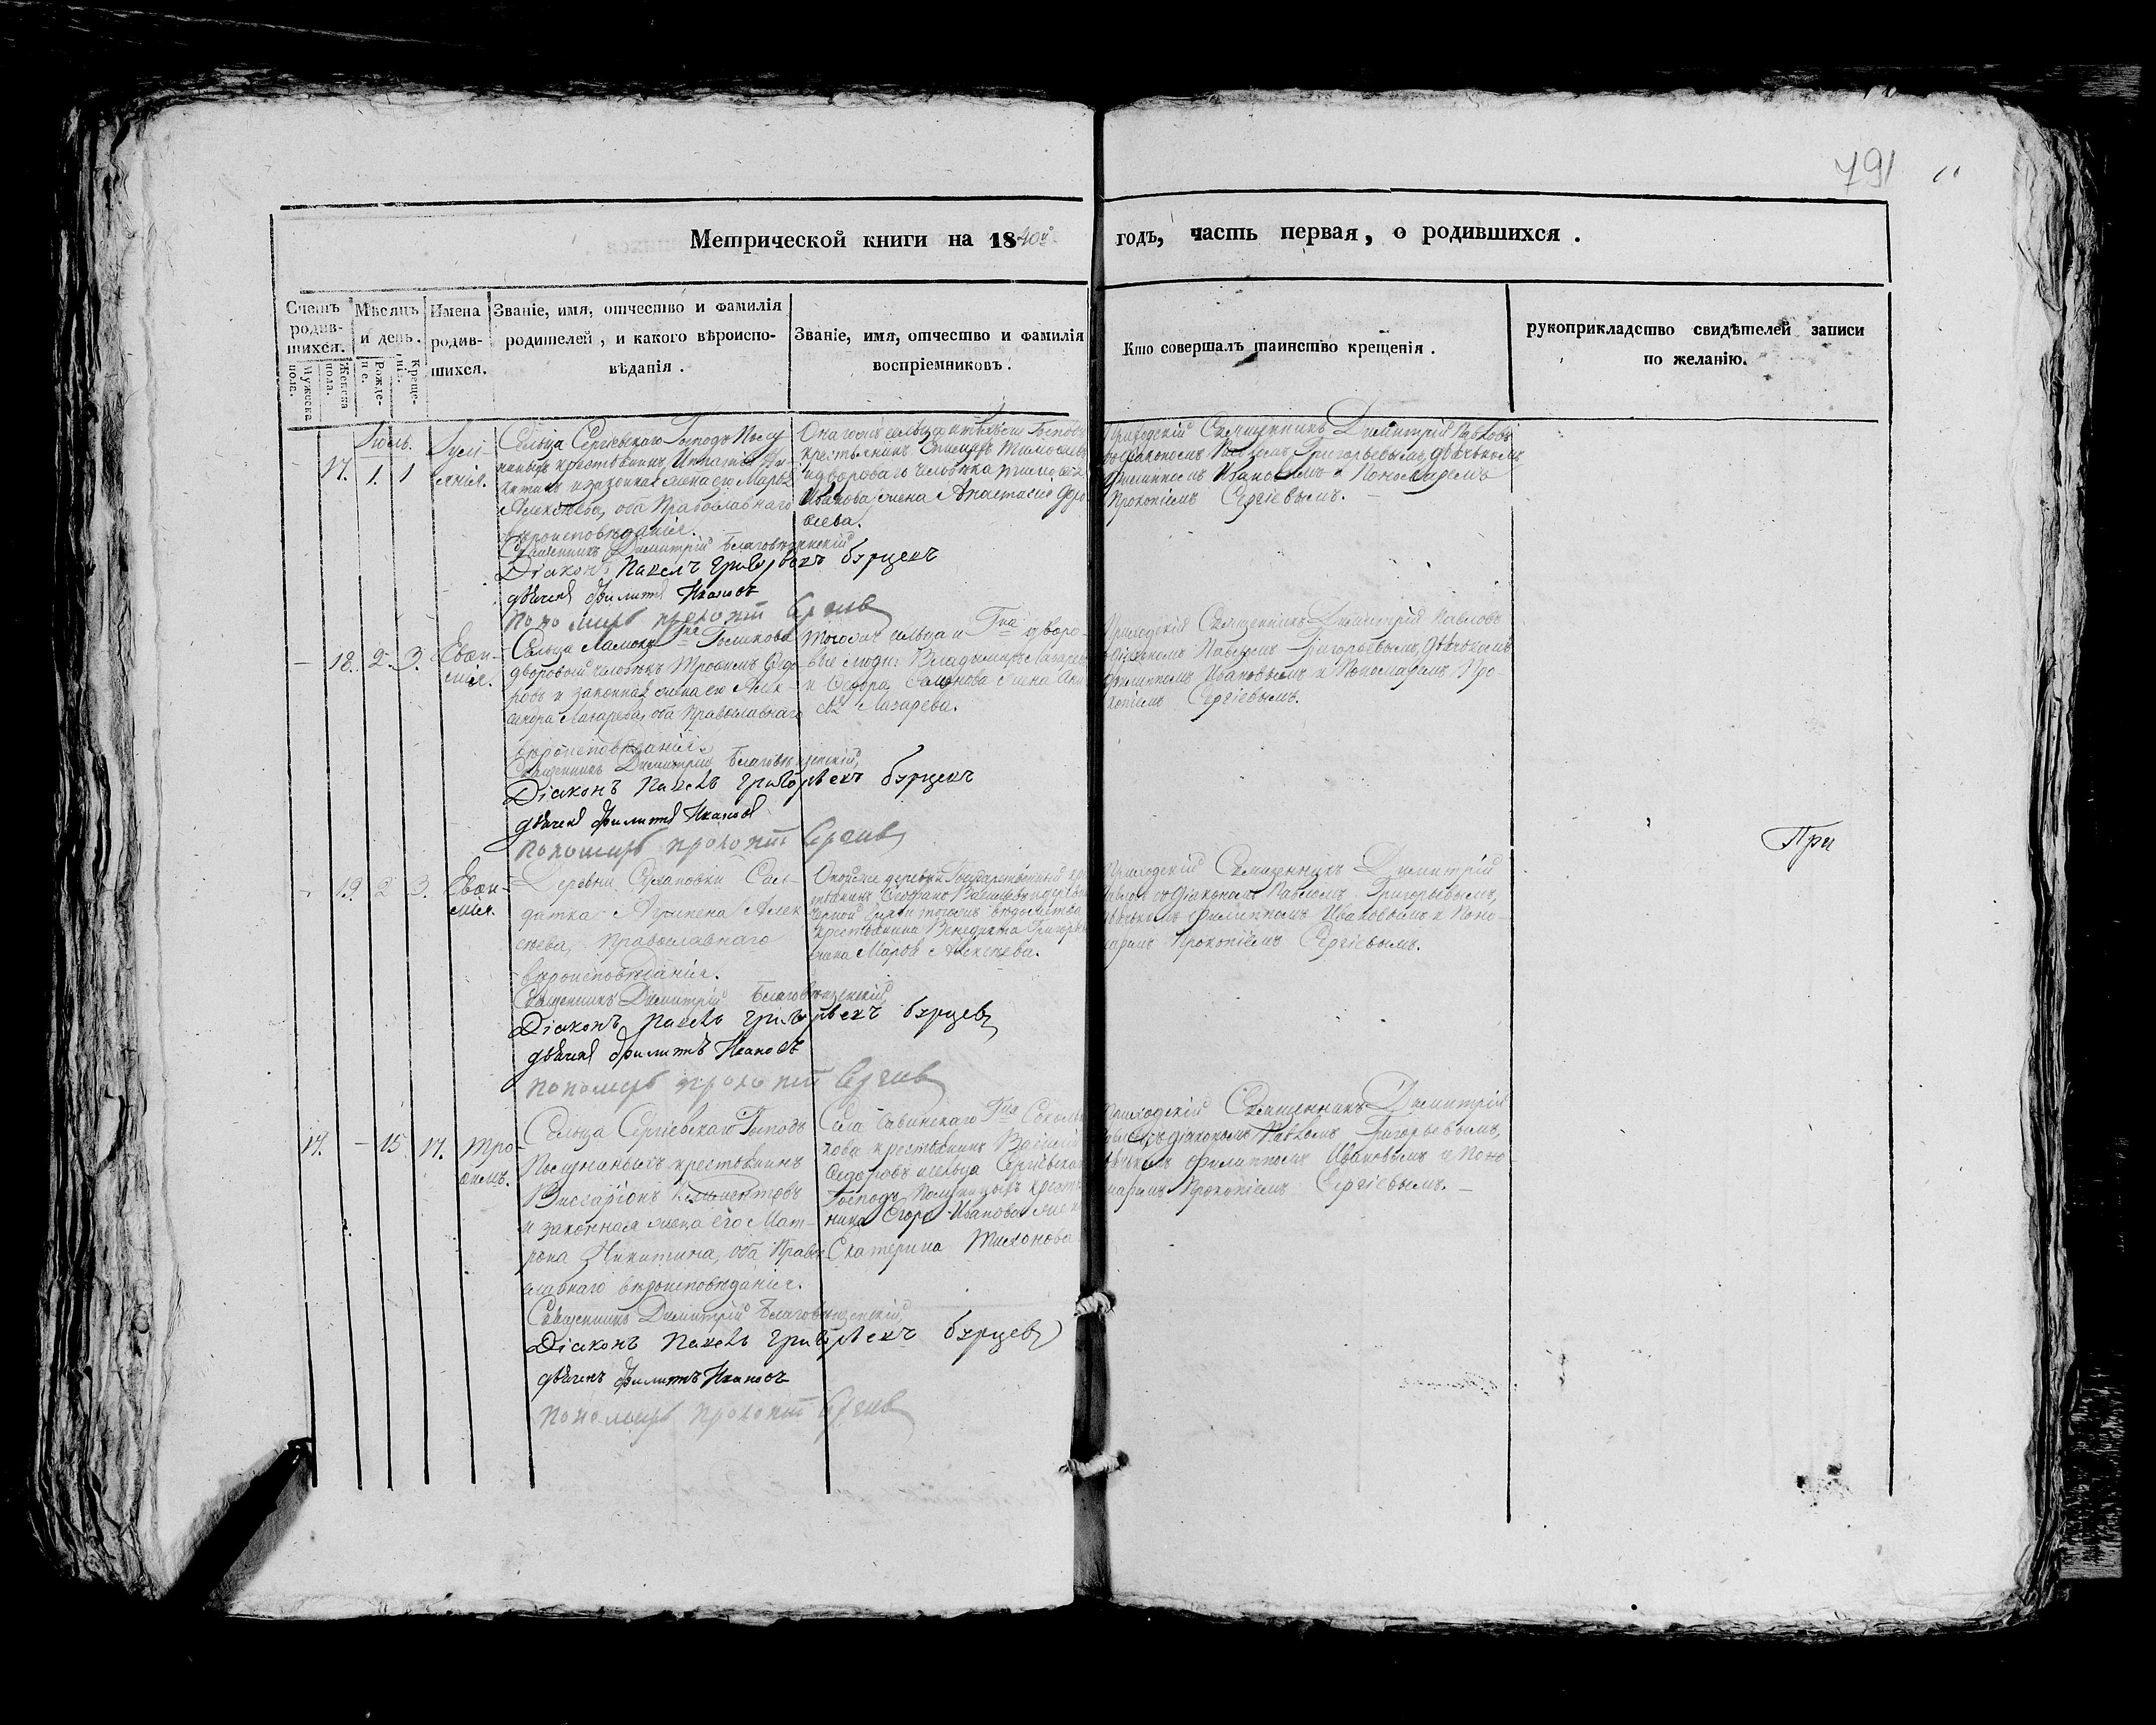 791
Метрической книги на 1840й годъ, часть первая, о родившихся.
Счетъ родив-шихся.
Мужеска пола.
Женска пола.
Мѣсяцъ и день.
Рожде-ніе.
Креще-нія.
Имена родив-шихся.
Званіе, имя, отчество и фамилія
родителей, и какого вѣроиспо-
вѣданія.
Званіе, имя, отчество и фамилія
воспріемниковъ.
Кто совершалъ таинство крещенія.
рукоприкладство свидѣтелей записи
по желанію.
Іюль.
17. 1. 1
Сельца Сергіевскаго Господъ
крестьянинъ Игнатій Ни-
китинъ и законная жена его Марѳа
Алексѣева, оба Православнаго
вѣроисповѣданія.
Священникъ Димитрій Благовѣщенскій
Діаконъ Павелъ Григорьевъ Бурцевъ
дьячекъ Филиппъ Ивановъ
пономарь прокопій Сергіевъ
Онагожъ сельца
крестьянинъ
и двороваго человѣка
Иванова жена Анастасія Ѳедо-
сеева.
Приходскій Священникъ Димитрій Павловъ
съ діакономъ Павломъ Григорьевымъ, дьячькомъ
Филиппомъ Ивановымъ и Пономаремъ
Прокопіемъ Сергіевымъ.
— 18. 2. 3. Евѳи-
мія.
Сельца Гна Голикова
дворовый человѣкъ Трофимъ Ѳедо-
ровъ и законная жена его Алек-
сандра Лазарева, оба Православнаго
вѣроисповѣданія.
Священникъ Димитрій Благовѣщенскій
Діаконъ Павелъ Григорьевъ Бурцевъ
дьячекъ Филиппъ Ивановъ
пономарь прокопій Сергіевъ
Тогожъ сельца и Гна дворо-
вые люди: Владимиръ Лазаревъ
и Ѳедора жена
Лазарева.
Приходскій Священникъ Димитрій Павловъ
съ діакономъ Павломъ Григорьевымъ, дьячькомъ
Филиппомъ Ивановымъ и Пономаремъ Про-
копіемъ Сергіевымъ.
При
— 19. 2. 3. Евѳи-
мія.
Деревни Сол-
датка Агрипена Алек-
сеева, Православнаго
вѣроисповѣданія.
Священникъ Димитрій Благовѣщенскій
Діаконъ Павелъ Григорьевъ Бурцевъ
дьячекъ Филиппъ Ивановъ
пономарь прокопій Сергіевъ
Онойже деревни Государственный кре-
стьянинъ и деревни
Черной Грязи тогожъ вѣдомства
крестьянина Венедикта Григорьева
жена Марѳа Алексеева.
Приходскій Священникъ Димитрій
Павловъ съ діакономъ Павломъ Григорьевымъ,
дьячькомъ Филиппомъ Ивановымъ и Поно-
маремъ Прокопіемъ Сергіевымъ.
17. — 15. 17. Тро-
фимъ.
Сельца Сергіевскаго Господъ
крестьянинъ
Виссаріонъ Климентовъ
и законная жена его Мат-
рона Никитина, оба Право-
славнаго вѣроисповѣданія.
Священникъ Димитрій Благовѣщенскій
Діаконъ Павелъ Григорьевъ Бурцевъ
дьячекъ Филиппъ Ивановъ
пономарь прокопій Сергіевъ
Села Савинскаго Гна
крестьянинъ Василій
Ѳедоровъ и сельца Сергіевскаго
Господъ крестья-
нина Егора Иванова жена
Екатерина Тихонова.
Приходскій Священникъ Димитрій
Павловъ съ діакономъ Павломъ Григорьевымъ,
дьячькомъ Филиппомъ Ивановымъ и Поно-
маремъ Прокопіемъ Сергіевымъ.